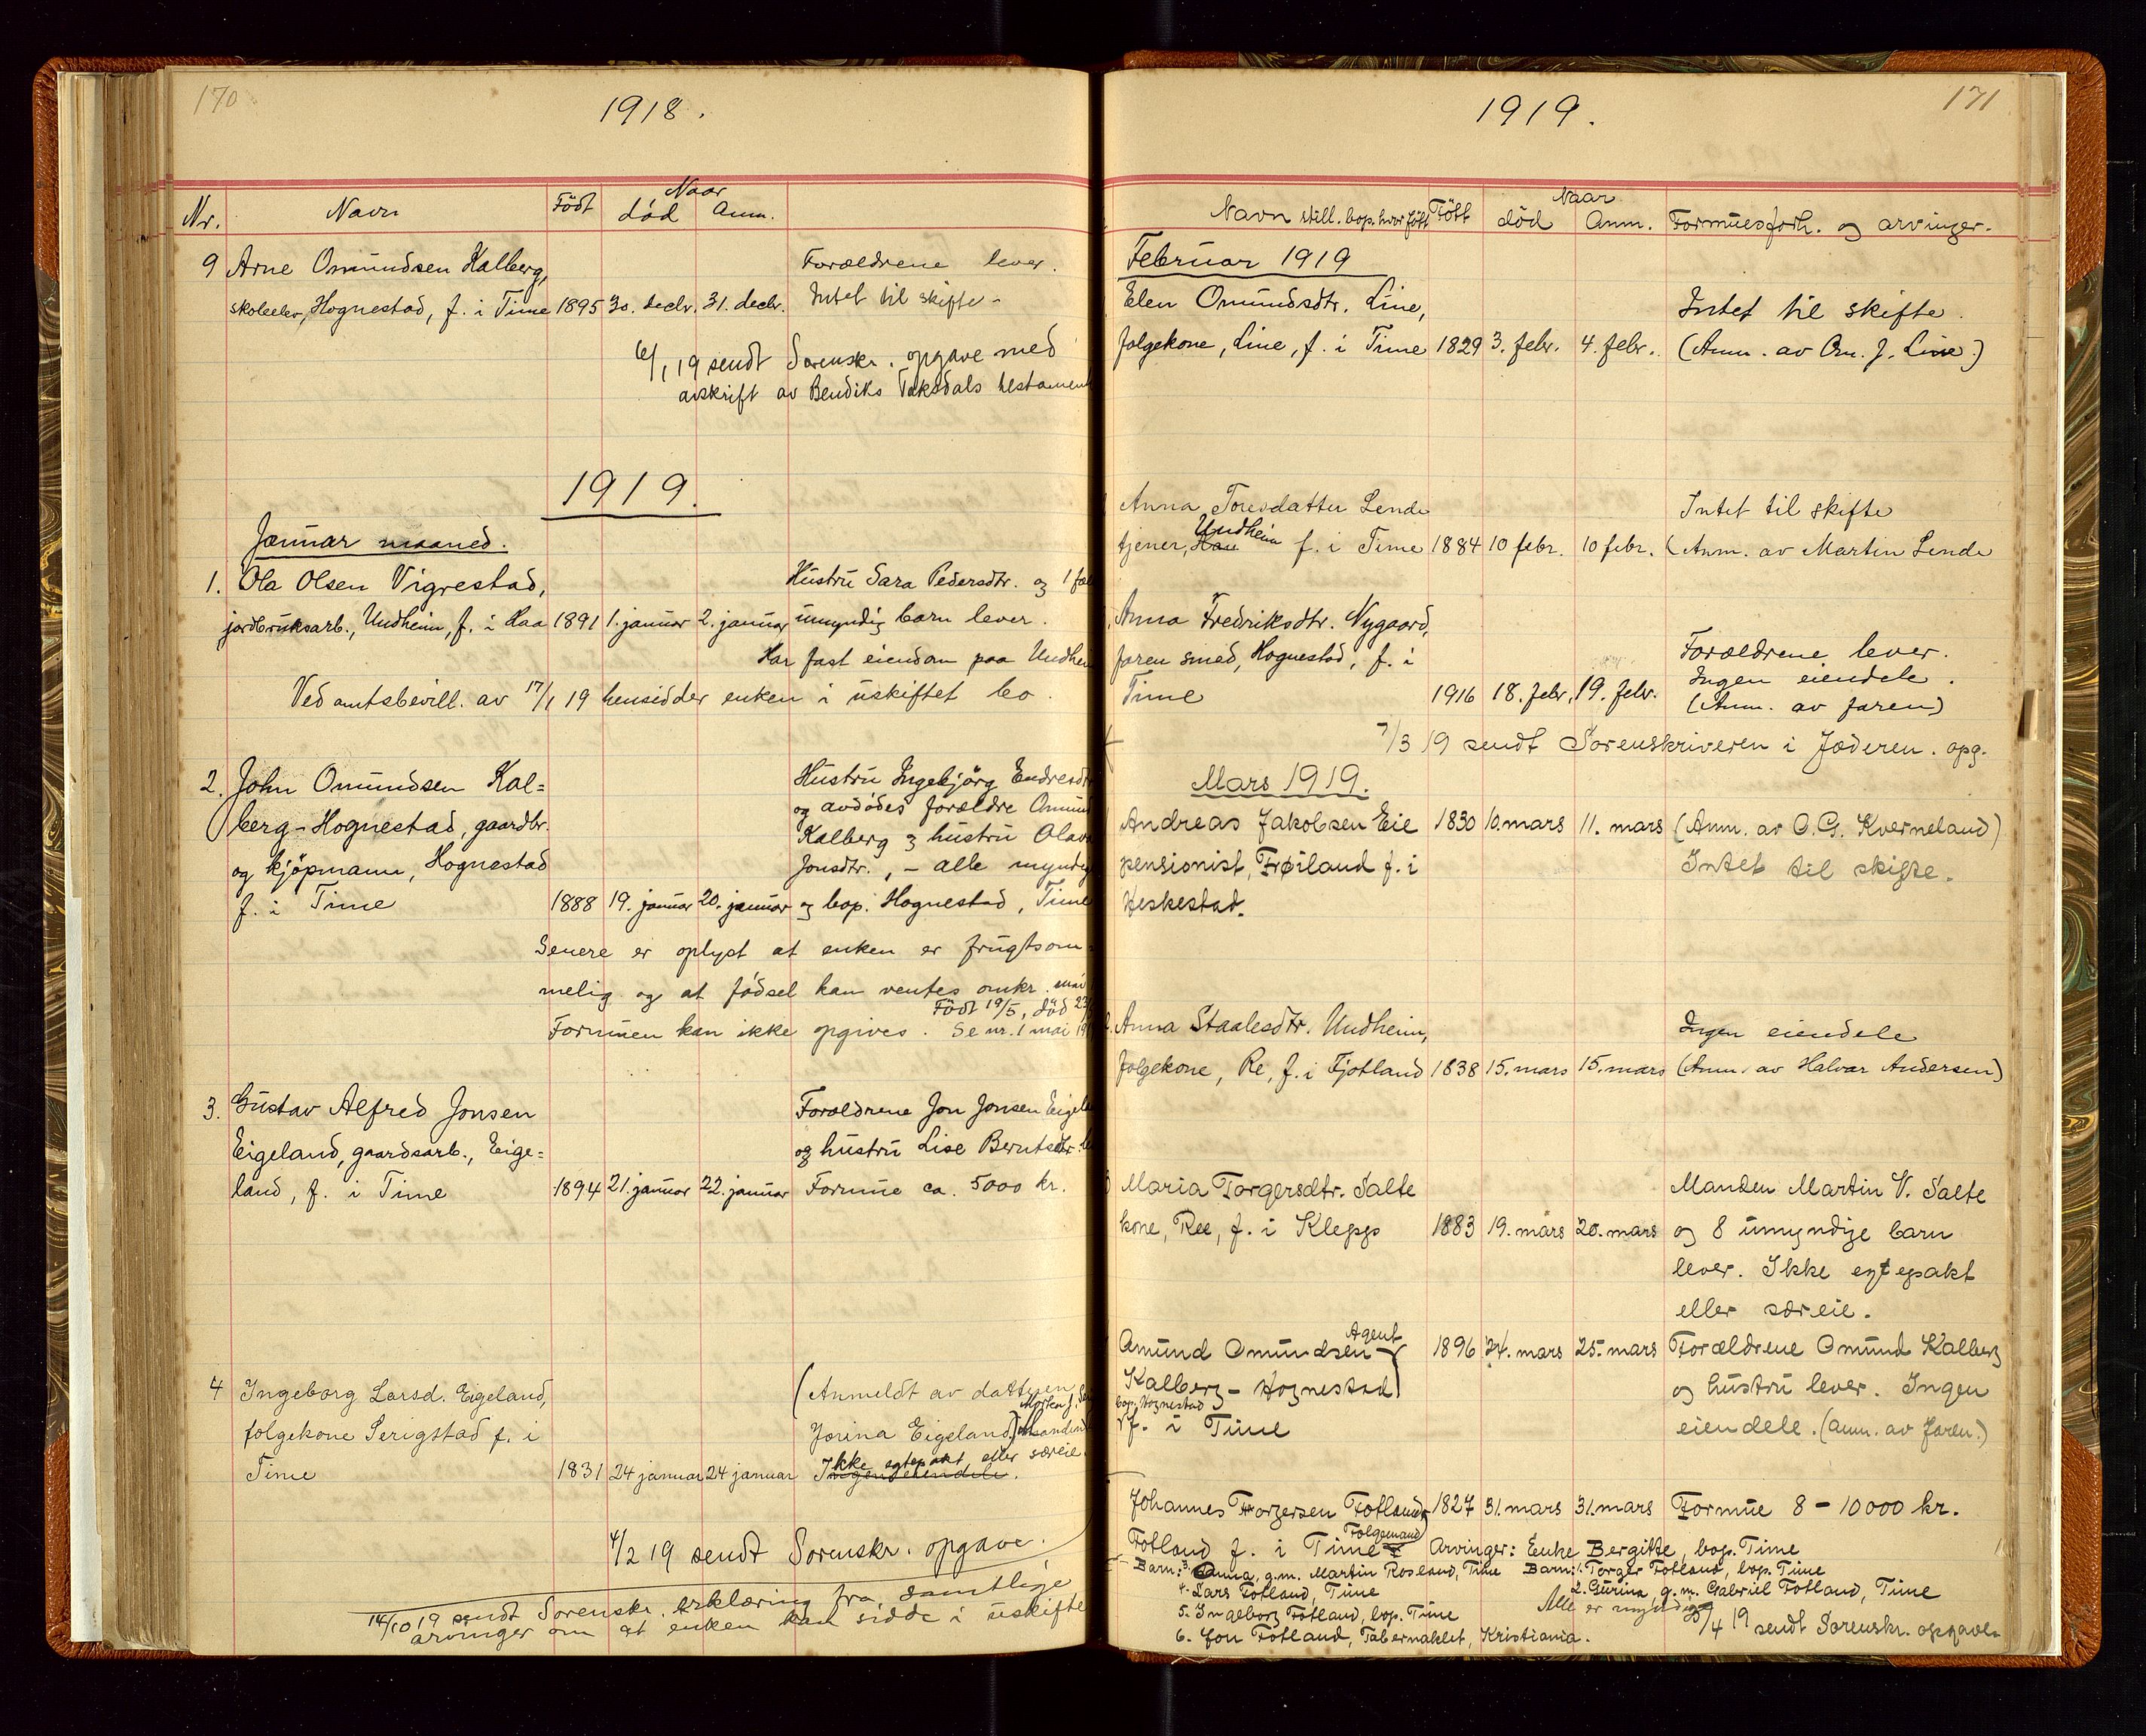 170
1918.
Nr. Navn Födt Naar död Anm.
9 Arne Omundsen Kalberg, Forældrene lever.
skoleelev, Hognestad, f. i Time 1895 30. decbr. 31. decbr. Intet til skifte -
6/1 19 sendt Sorenskr. opgave med
avskrift av Bendiks Taksdals testament
1919.
Januar maaned.
1. Ola Olsen Vigrestad, Hustru Sara Pedersdtr. og 1
jordbruksarb., Undheim, f. i Haa 1891 1. januar 2. januar umyndig barn lever.
Har fast eiendom paa Undhe
Ved amtsbevill. av 17/1 19 hensidder enken i uskiftet bo.
2. John Omundsen Kal= Hustru Ingebjörg Endresdt
og avdödes forældre Omun
berg-Hognestad, gaardbr. Kalberg og hustru Olav
og kjöpmann, Hognestad Jonsdtr., - alle myndig
f. i Time 1888 19. januar 20. januar og bop. Hognestad, Time
Senere er oplyst at enken er frugtsom
melig og at födsel kan ventes omkr. mai
Födt 19/5, död 23
Formuen kan ikke opgives. Se nr. 1 mai 19
3. Gustav Alfred Jonsen Forældrene Jon Jonsen Eigel
Eigeland, gaardsarb., Eige= og hustru Lise Berntsdtr.
land, f. i Time 1894 21. januar 22. januar Formue ca. 5000 kr.
4 Ingeborg Larsd. Eigeland, (Anmeldt av datteren
Morten J.
folgekone Serigstad f. i Jorina Eigeland)
Ikke egtepakt eller særeie.
Time 1831 24 januar 24 januar Ingen eiendele.
4/2 19 sendt Sorenskr. opgave.
14/10 19 sendt Sorenskr. erklæring fra samtlige
arvinger om at enken kan sidde i uskifte
171
1919.
Navn still. bop. hvor født Født Naar død Anm. Formuesforh. og arvinger.
Februar 1919
Elen Omundsdtr. Line, Intet til skifte.
folgekone, Line, f. i Time 1829 3. febr. 4. febr. (Anm. av Om. J. Line)
Anna Toresdatter Lende Intet til skifte
Undheim
tjener, Hau f. i Time 1884 10 febr. 10 febr. (Anm. av Martin Lende
Anna Fredriksdtr. Nygaard,
faren smed, Hognestad, f. i Forældrene lever.
Ingen eiendele.
Time 1916 18. febr. 19. febr. (Anm. av faren)
7/3 19 sendt Sorenskriveren i Jæderen. opg.
Mars 1919.
Andreas Jakobsen Eie 1830 10. mars 11. mars (Anm. av O.G. Kverneland)
pensionist, Frøiland f. i Intet til skifte.
Heskestad.
Anna Staalesdtr. Undheim, Ingen eiendele
folgekone, Re, f. i Fjotland 1838 15. mars 15. mars (Anm. av Halvar Andersen)
Maria Torgersdtr. Salte Manden Martin V. Salte
kone, Ree, f. i Klepp 1883 19. mars 20. mars og 8 umyndige barn
lever. Ikke egtepakt
eller særeie.
Agent
Amund Omundsen 1896 24. mars 25. mars Forældrene Omund Kalberg
Kalberg - Hognestad og hustru lever. Ingen
bop. Hognestad
f. i Time eiendele. (anm. av faren.)
Johannes Torgersen Fotland 1827 31. mars 31. mars Formue 8 - 10000 kr.
Folgemand
Fotland f. i Time Arvinger: Enke Bergitte, bop. Time
Barn: 3. Anna, g.m. Martin Rosland, Time Barn: 1. Torger Fotland, bop. Time
4. Lars Fotland, Time 2. Gurina g.m. Gabriel Fotland, Time
5. Ingeborg Fotland, bop. Time Alle er myndige
6. Jon Fotland, Tabernaklet, Kristiania. /4 19 sendt Sorenskr. opgave